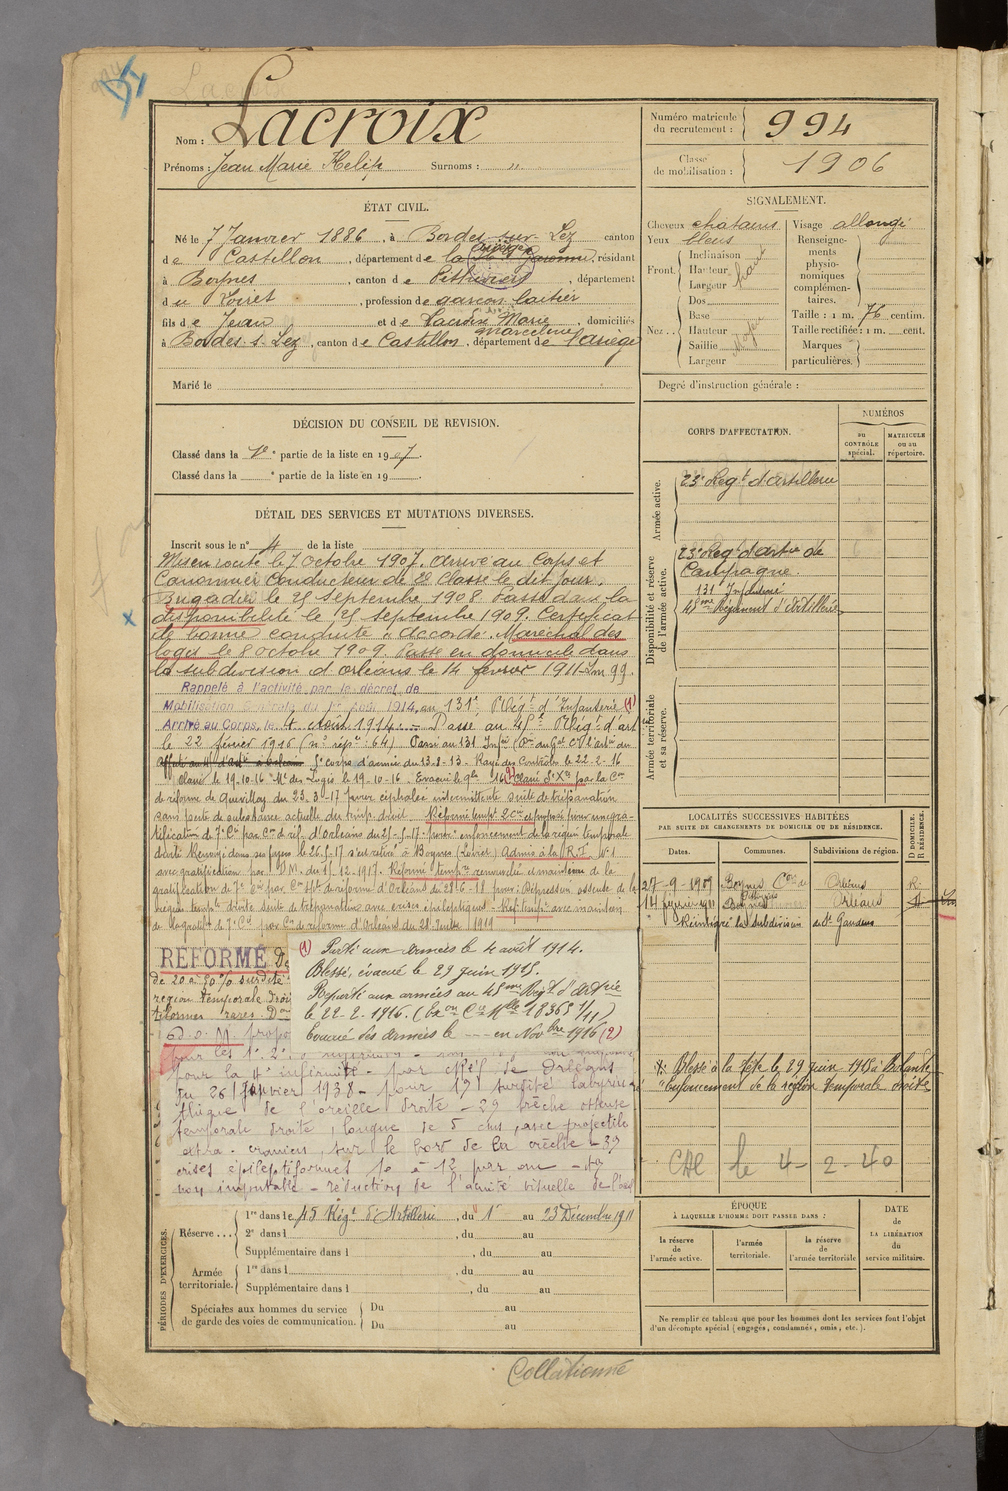 Lacroix
Nom : Lacroix
Prénoms : Jean Marie Surnoms : "
Numéro matricule du recrutement : 994
Classe de mobilisation : 1906
ÉTAT CIVIL.
Né le 7 Janvier 1886, à Bordes-sur-Lez canton
de Castillon, département de la Hte Garonne, résidant
Ariège
à Boynes, canton de Pithiviers, département
du Loiret, profession de garçon laitier
fils de Jean et de Lacroix Marie, domiciliés
Marceline
à Bordes-s-Lez, canton de Castillon, département de l'ariège
Marié le
SIGNALEMENT.
Cheveux chatains
Yeux bleus
Front
Inclinaison
Hauteur
Largeur
haut
Nez
Dos
Base
Hauteur
Saillie
Largeur
Moyen
Visage allongé
Renseignements physionomiques complémentaires.
Taille : 1 m. 76 centim.
Taille rectifiée : 1 m. cent.
Marques particulières.
Degré d'instruction générale :
DÉCISION DU CONSEIL DE REVISION.
Classé dans la 1re partie de la liste en 1907.
Classé dans la e partie de la liste en 19 .
CORPS D'AFFECTATION.
NUMÉROS
AU CONTRÔLE spécial.
MATRICULE ou au répertoire.
Armée active.
23e Regt d'artillerie
Disponibilité et réserve de l'armée active.
23e Regt d'artie de
Campagne.
131 Infanterie
45me Régiment d'Artillerie
Armée territoriale et sa réserve.
DÉTAIL DES SERVICES ET MUTATIONS DIVERSES.
Inscrit sous le n° 4 de la liste
Mis en route le 7 octobre 1907, arrivé au Corps et
Canonnier Conducteur de 2e Classe le dit jour.
Brigadier le 25 septembre 1908. Passé dans la
disponibilité le 25 septembre 1909. Certificat
de bonne conduite "accordé". Maréchal des
logis le 8 octobre 1909. Passe en domicile dans
la subdivision d'orléans le 14 février 1911
Rappelé à l'activité par le décret de
Mobilisation Générale du 1er Août 1914, au 131e Régt d'Infanterie (1)
Arrivé au Corps, le 4 Août 1914. Passé au 45e Régt d'art
le 22 février 1916 (n° rép: 64) Passé au 131 Infie
5e corps d'armée du 13-8-13 - Rayé des Contrôles le 22-2-16
Classé le 19-10-16 Mal des Logis le 19-10-16. Evacué (2) Classé Sce Xre par la Con
de réforme de Quevilly du 23-3-17 pour céphalée intermittente suite de trépanation
sans perte de substance actuelle du temp. droit. Réformé tempt 2 et proposé pour une gra-
tification de 7e Cie par Con de réf. d'Orléans du 25-5-17 pour enfoncement de la région temporale
droite Renvoyé dans ses foyers le 26-5-17 s'est retiré à Boynes (Loiret) Admis à la R.T. N° 1
avec gratification par D.M. du 15-12-1917. Réformé tempre renouvelé et maintien de la
gratification de 7e Cie par Con de réforme d'Orléans du 28-6-18 pour : Dépression osseuse de la
région temple droite suite de trépanation avec crises épileptiques - Réf. tempre avec maintien
de la gratifon 7e Cie par Con de réforme d'Orléans du 28 Juillet 1919
RÉFORMÉ
de 20 à 50 % surdité
région temporale droi
(1) Parti aux armées le 4 août 1914.
Blessé, évacué le 29 juin 1915.
Reparti aux armées au 45me Régt d'Artrie
le 22-2-1916.
Evacué des armées le --- en Novbre 1916 (2)
pour la 4e infirmité - par cMRéf de Orléans
du 26 Janvier 1938 - pour 1°) surdité labyrin-
thique de l'oreille droite - 2° brèche osseuse
temporale droite, longue de 5 cms, avec projectile
extra-cranien, sur le bord de la brèche - 3°
crises épileptiformes 10 à 12 par an -
non imputable - réduction de l'acuité visuelle de l'oeil
LOCALITÉS SUCCESSIVES HABITÉES
PAR SUITE DE CHANGEMENTS DE DOMICILE OU DE RÉSIDENCE.
Dates. Communes. Subdivisions de région. D DOMICILE. R RÉSIDENCE.
27-9-1909 Boynes Con de Orléans R.
Pithiviers
14 février 1911 Boynes Orléans
Réintégré la subdivision de St Gaudens
*: Blessé à la tête le 29 juin 1915 à Bolante
"Enfoncement de la région temporale droite
CAC le 4-2-40
PÉRIODES D'EXERCICES.
Réserve...
1re dans le 45 Régt d'Artillerie, du 1er au 23 Décembre 1911
2e dans l , du au
Supplémentaire dans l , du au
Armée territoriale.
1re dans l , du au
Supplémentaire dans l , du au
Spéciales aux hommes du service de garde des voies de communication.
Du au
Du au
ÉPOQUE
À LAQUELLE L'HOMME DOIT PASSER DANS :
la réserve de l'armée active.
l'armée territoriale.
la réserve de l'armée territoriale
DATE de LA LIBÉRATION du service militaire.
Ne remplir ce tableau que pour les hommes dont les services font l'objet
d'un décompte spécial (engagés, condamnés, omis, etc.).
Collationné